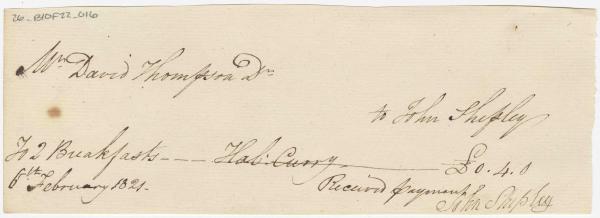 26_B10F22_016
Mr. David Thompson Dr.
to John Shepley
To 2 Breakfasts --- Hal: Curry — £0.4.0
6th February 1821. Received payment
John Shepley